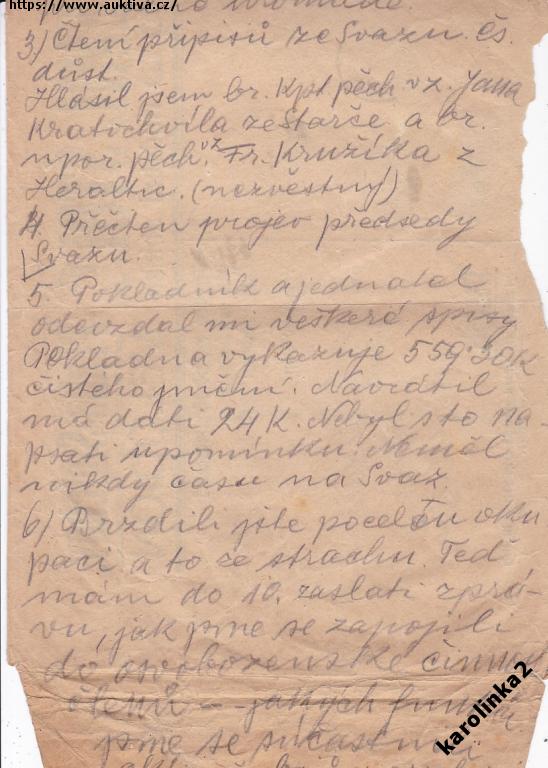 https://www.auktiva.cz/
3) Čtení přípisů ze Svazu čs.
důst.
Hlásil jsem br. kpt pěch vz. Jana
Kratochvíla ze Starče a br.
npor. pěch. vz Fr. Kružíka z
Heraltic. (nezvěstný)
4. Přečten projev předsedy
Svazu.
5. Pokladník a jednatel
odevzdal mi veškeré spisy
Pokladna vykazuje 559.30 K
čistého jmění. Navrátil
má dati 24 K. Nebyl s to na-
psati upomínku. Neměl
nikdy času na Svaz.
6) Brzdili jste po celou oku
paci a to ze strachu. Teď
mám do 10. zaslati zprá-
vu, jak jsme se zapojili
do osvobozenské činnosti
členů - jakých funkcí
jsme se súčastnili
karolinka2